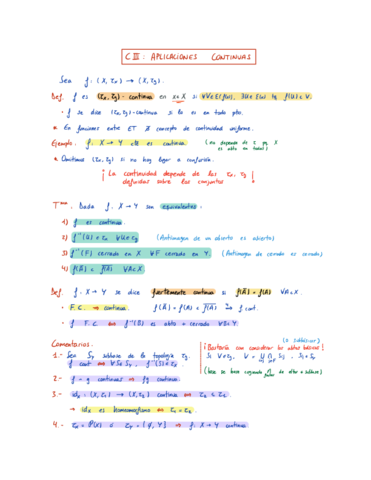 C III: APLICACIONES CONTINUAS
Sea f: (X, τx) → (X, τy).
Def. f es (τx, τy)-continua en x∈X si ∀V∈E(f(x)), ∃U∈E(x) tq f(U) ⊂ V.
· f se dice (τx, τy)-continua si lo es en todo pto.
* En funciones entre ET ∄ concepto de continuidad uniforme.
Ejemplo. f: X → Y cte es continua.
* Omitimos (τx, τy) si no hay lugar a confusión.
¡ La continuidad depende de las τx, τy !
definidas sobre los conjuntos
Tma. Dada f: X → Y son equivalentes:
1) f es continua
2) f⁻¹(U) ∈ τx ∀U∈τy (Antiimagen de un abierto es abierto)
3) f⁻¹(F) cerrado en X ∀F cerrado en Y. (Antiimagen de cerrado es cerrado)
4) ∀A⊂X.
Def. f: X → Y se dice fuertemente continua si ∀A⊂X.
· F.C. ⇒ continua. f cont.
· f F.C. ⇔ f⁻¹(B) es abto y cerrado ∀B⊂Y
Comentarios.
1.- Sea Sy subbase de la topología τy.
¡Bastaría con considerar los abtos básicos!
2.- f y g continuas ⇒ continua.
3.- idx = (X, τ1) → (X, τ2) continua ⇔ τ2 ⊂ τ1
→ idx es homeomorfismo ⇔ τ1 = τ2.
4.- τx = P(X) ó τy = {∅, Y} ⇒ f: X → Y continua